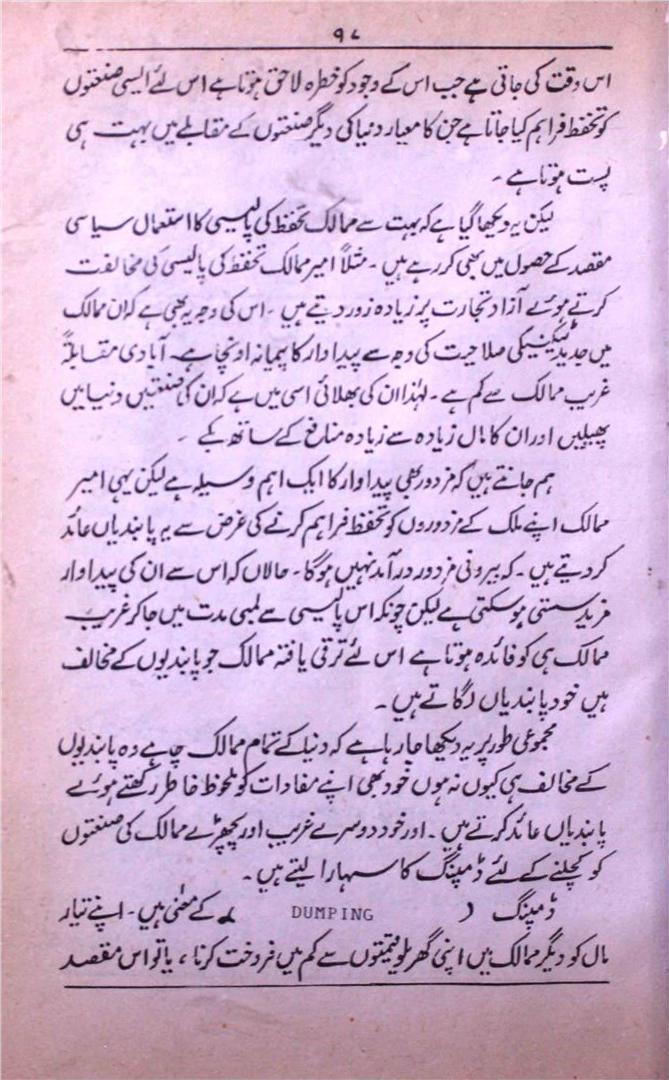 ۹۸
اس وقت کی جاتی ہے جب اس کے وجود کو خطرہ لاحق ہوتا ہے اس لئے ایسی صنعتوں
کو تحفظ فراہم کیا جاتا ہے جن کا معیار دنیا کی دیگر صنعتوں کے مقابلے میں بہت ہی
پست ہوتا ہے ۔
لیکن یہ دیکھا گیا ہے کہ بہت سے ممالک تحفظ کی پالیسی کا استعمال سیاسی
مقصد کے حصول میں بھی کر رہے ہیں ۔ مثلاً امیر ممالک تحفظ کی پالیسی کی مخالفت
کرتے ہوئے آزاد تجارت پر زیادہ زور دیتے ہیں ۔ اس کی وجہ یہ بھی ہے کہ ان ممالک
میں جدید ٹیکنیکی صلاحیت کی وجہ سے پیداوار کا پیمانہ اونچا ہے۔ آبادی مقابلتاً
غریب ممالک سے کم ہے ۔ لہٰذا ان کی بھلائی اسی میں ہے کہ ان کی صنعتیں دنیا میں
پھیلیں اور ان کا مال زیادہ سے زیادہ منافع کے ساتھ بکے ۔
ہم جانتے ہیں کہ مزدور بھی پیداوار کا ایک اہم وسیلہ ہے لیکن یہی امیر
ممالک اپنے ملک کے مزدوروں کو تحفظ فراہم کرنے کی غرض سے یہ پابندیاں عائد
کر دیتے ہیں ۔ کہ بیرونی مزدور درآمد نہیں ہوگا ۔ حالاں کہ اس سے ان کی پیداوار
مزید سستی ہو سکتی ہے لیکن چونکہ اس پالیسی سے لمبی مدت میں جا کر غریب
ممالک ہی کو فائدہ ہوتا ہے اس لئے ترقی یافتہ ممالک جو پابندیوں کے مخالف
ہیں خود پابندیاں لگاتے ہیں ۔
مجموعی طور پر یہ دیکھا جا رہا ہے کہ دنیا کے تمام ممالک چاہے وہ پابندیوں
کے مخالف ہی کیوں نہ ہوں خود بھی اپنے مفادات کو ملحوظ خاطر رکھتے ہوئے
پابندیاں عائد کرتے ہیں ۔ اور خود دوسرے غریب اور پچھڑے ممالک کی صنعتوں
کو کچلنے کے لئے ڈمپنگ کا سہارا لیتے ہیں ۔
ڈمپنگ ( DUMPING ) کے معنی ہیں ۔ اپنے تیار
مال کو دیگر ممالک میں اپنی گھریلو قیمتوں سے کم میں فروخت کرنا ، یا تو اس مقصد